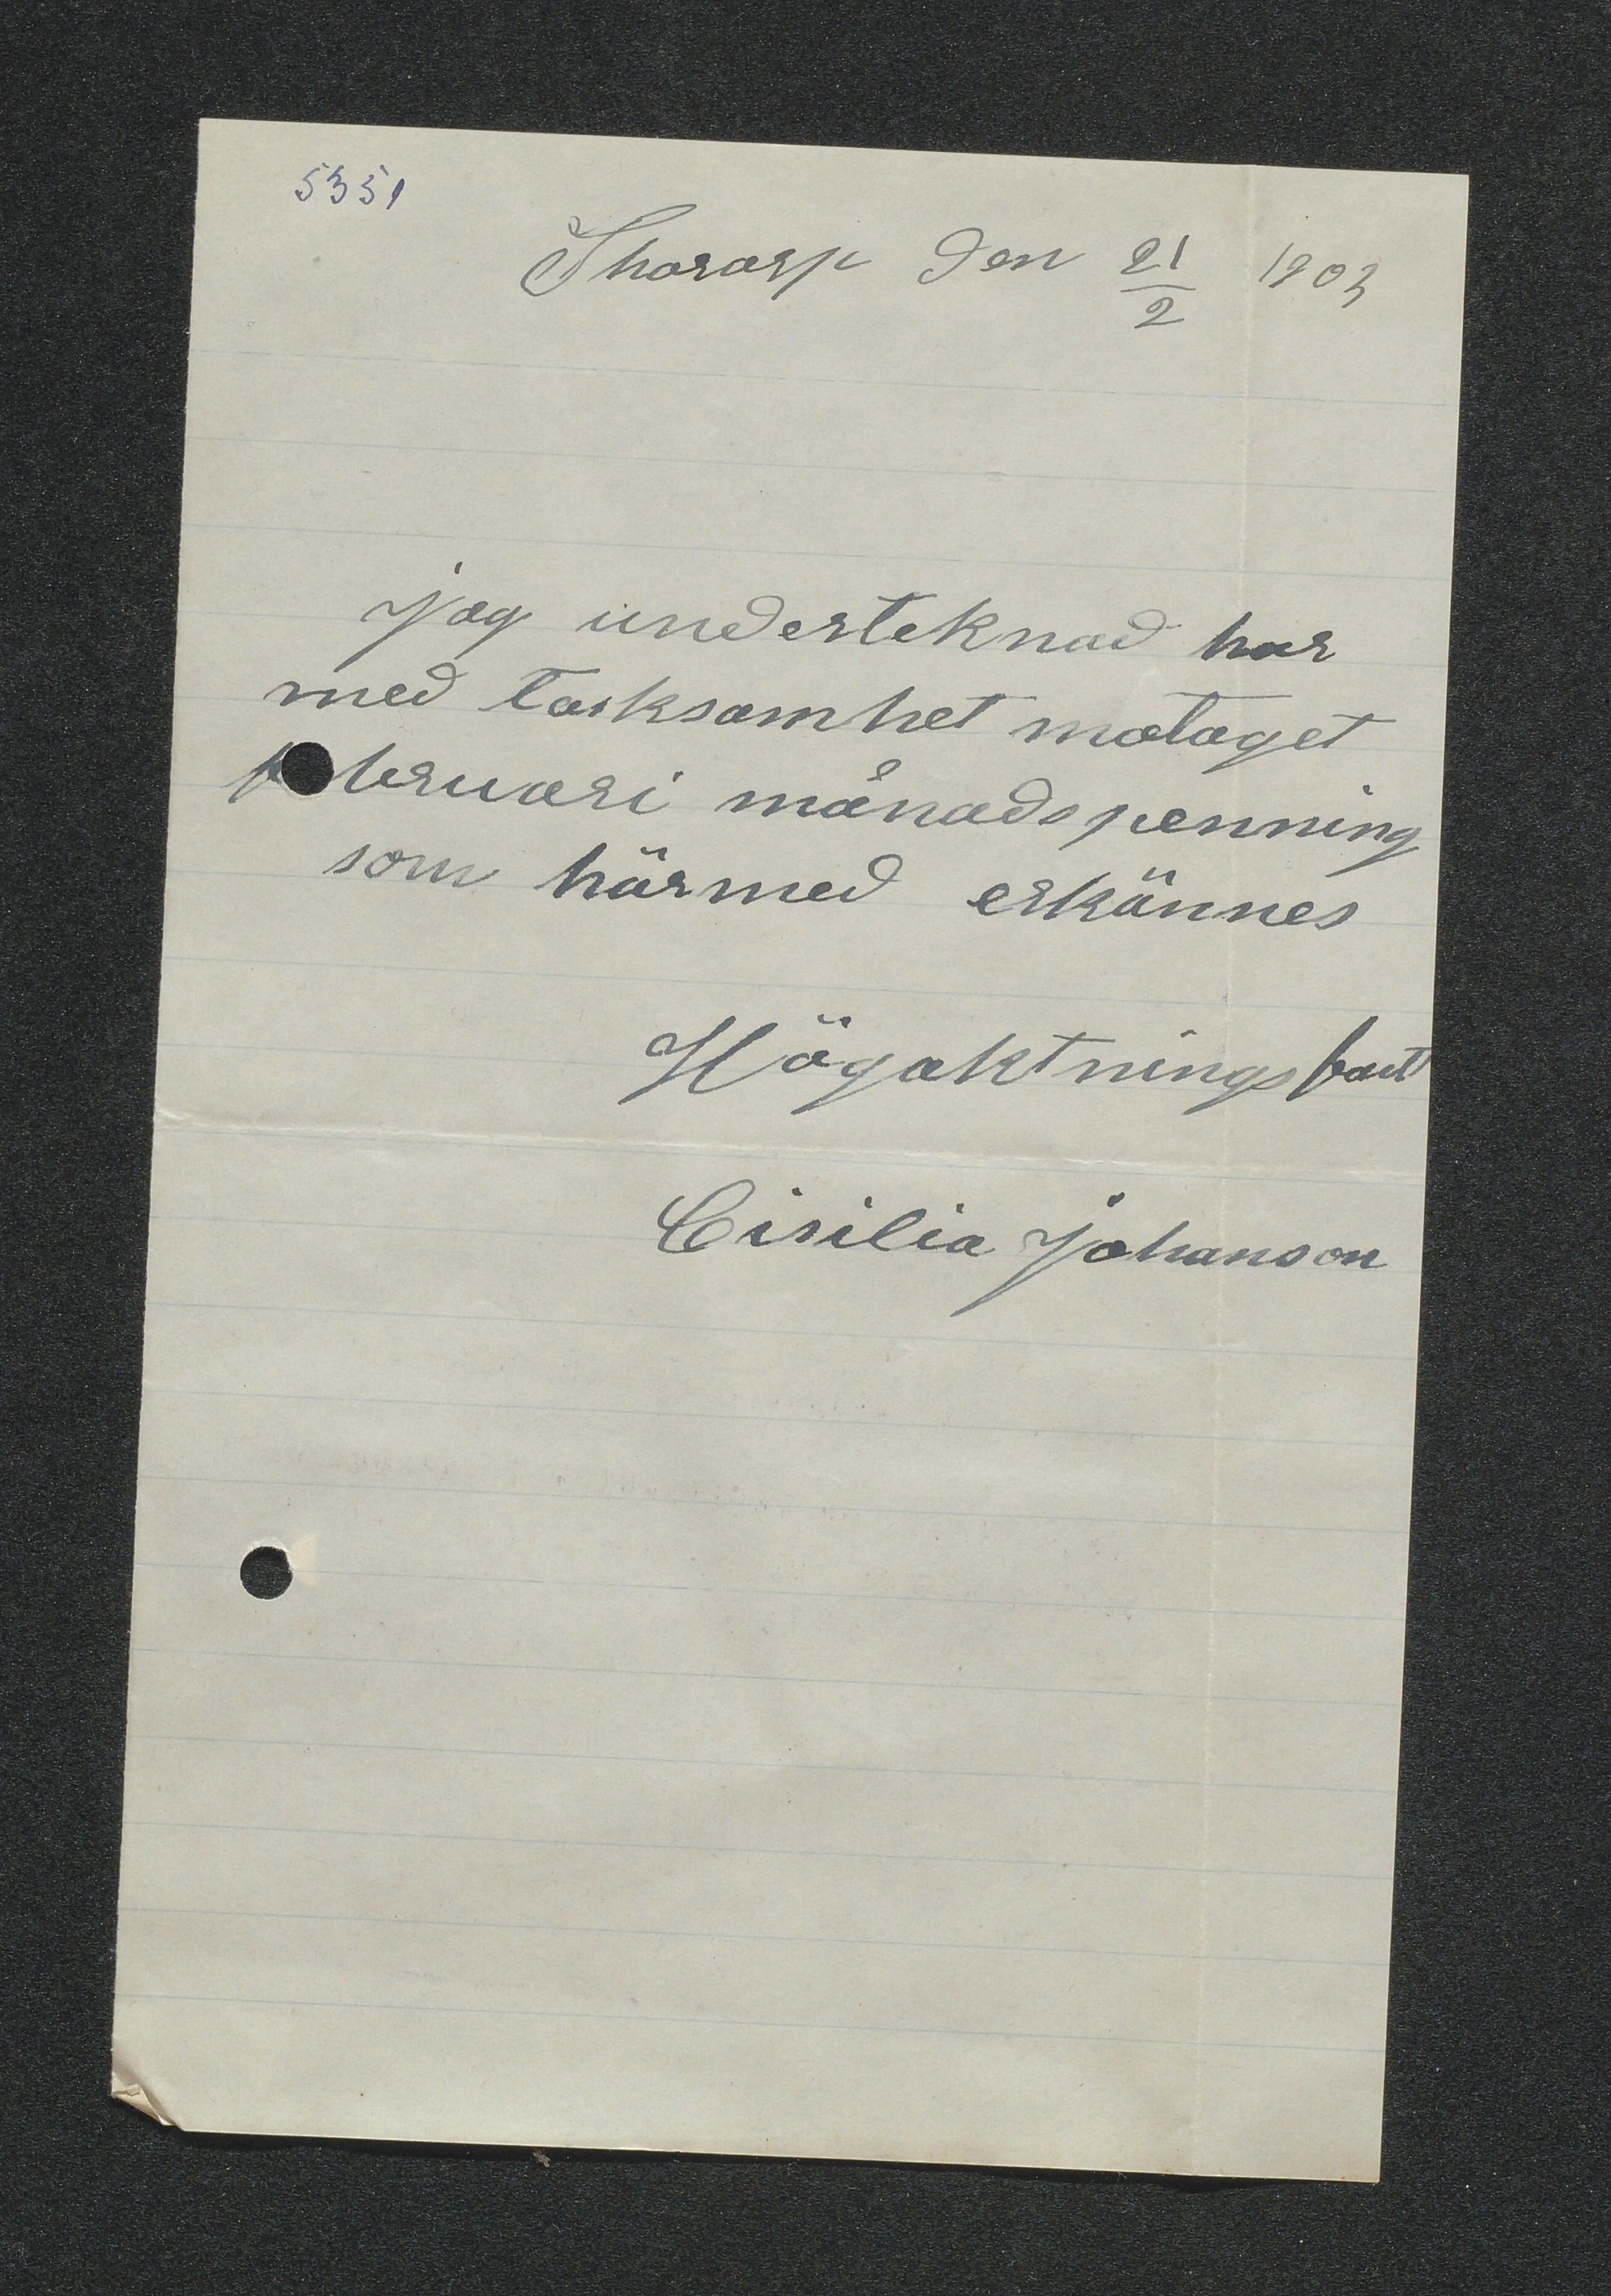 5351
Thorarp den 21/2 1903
jag underteknad har
med taksamhet motaget
februari månadspenning
som härmed erkännes
Högaktningsfult
Cisilia Johanson